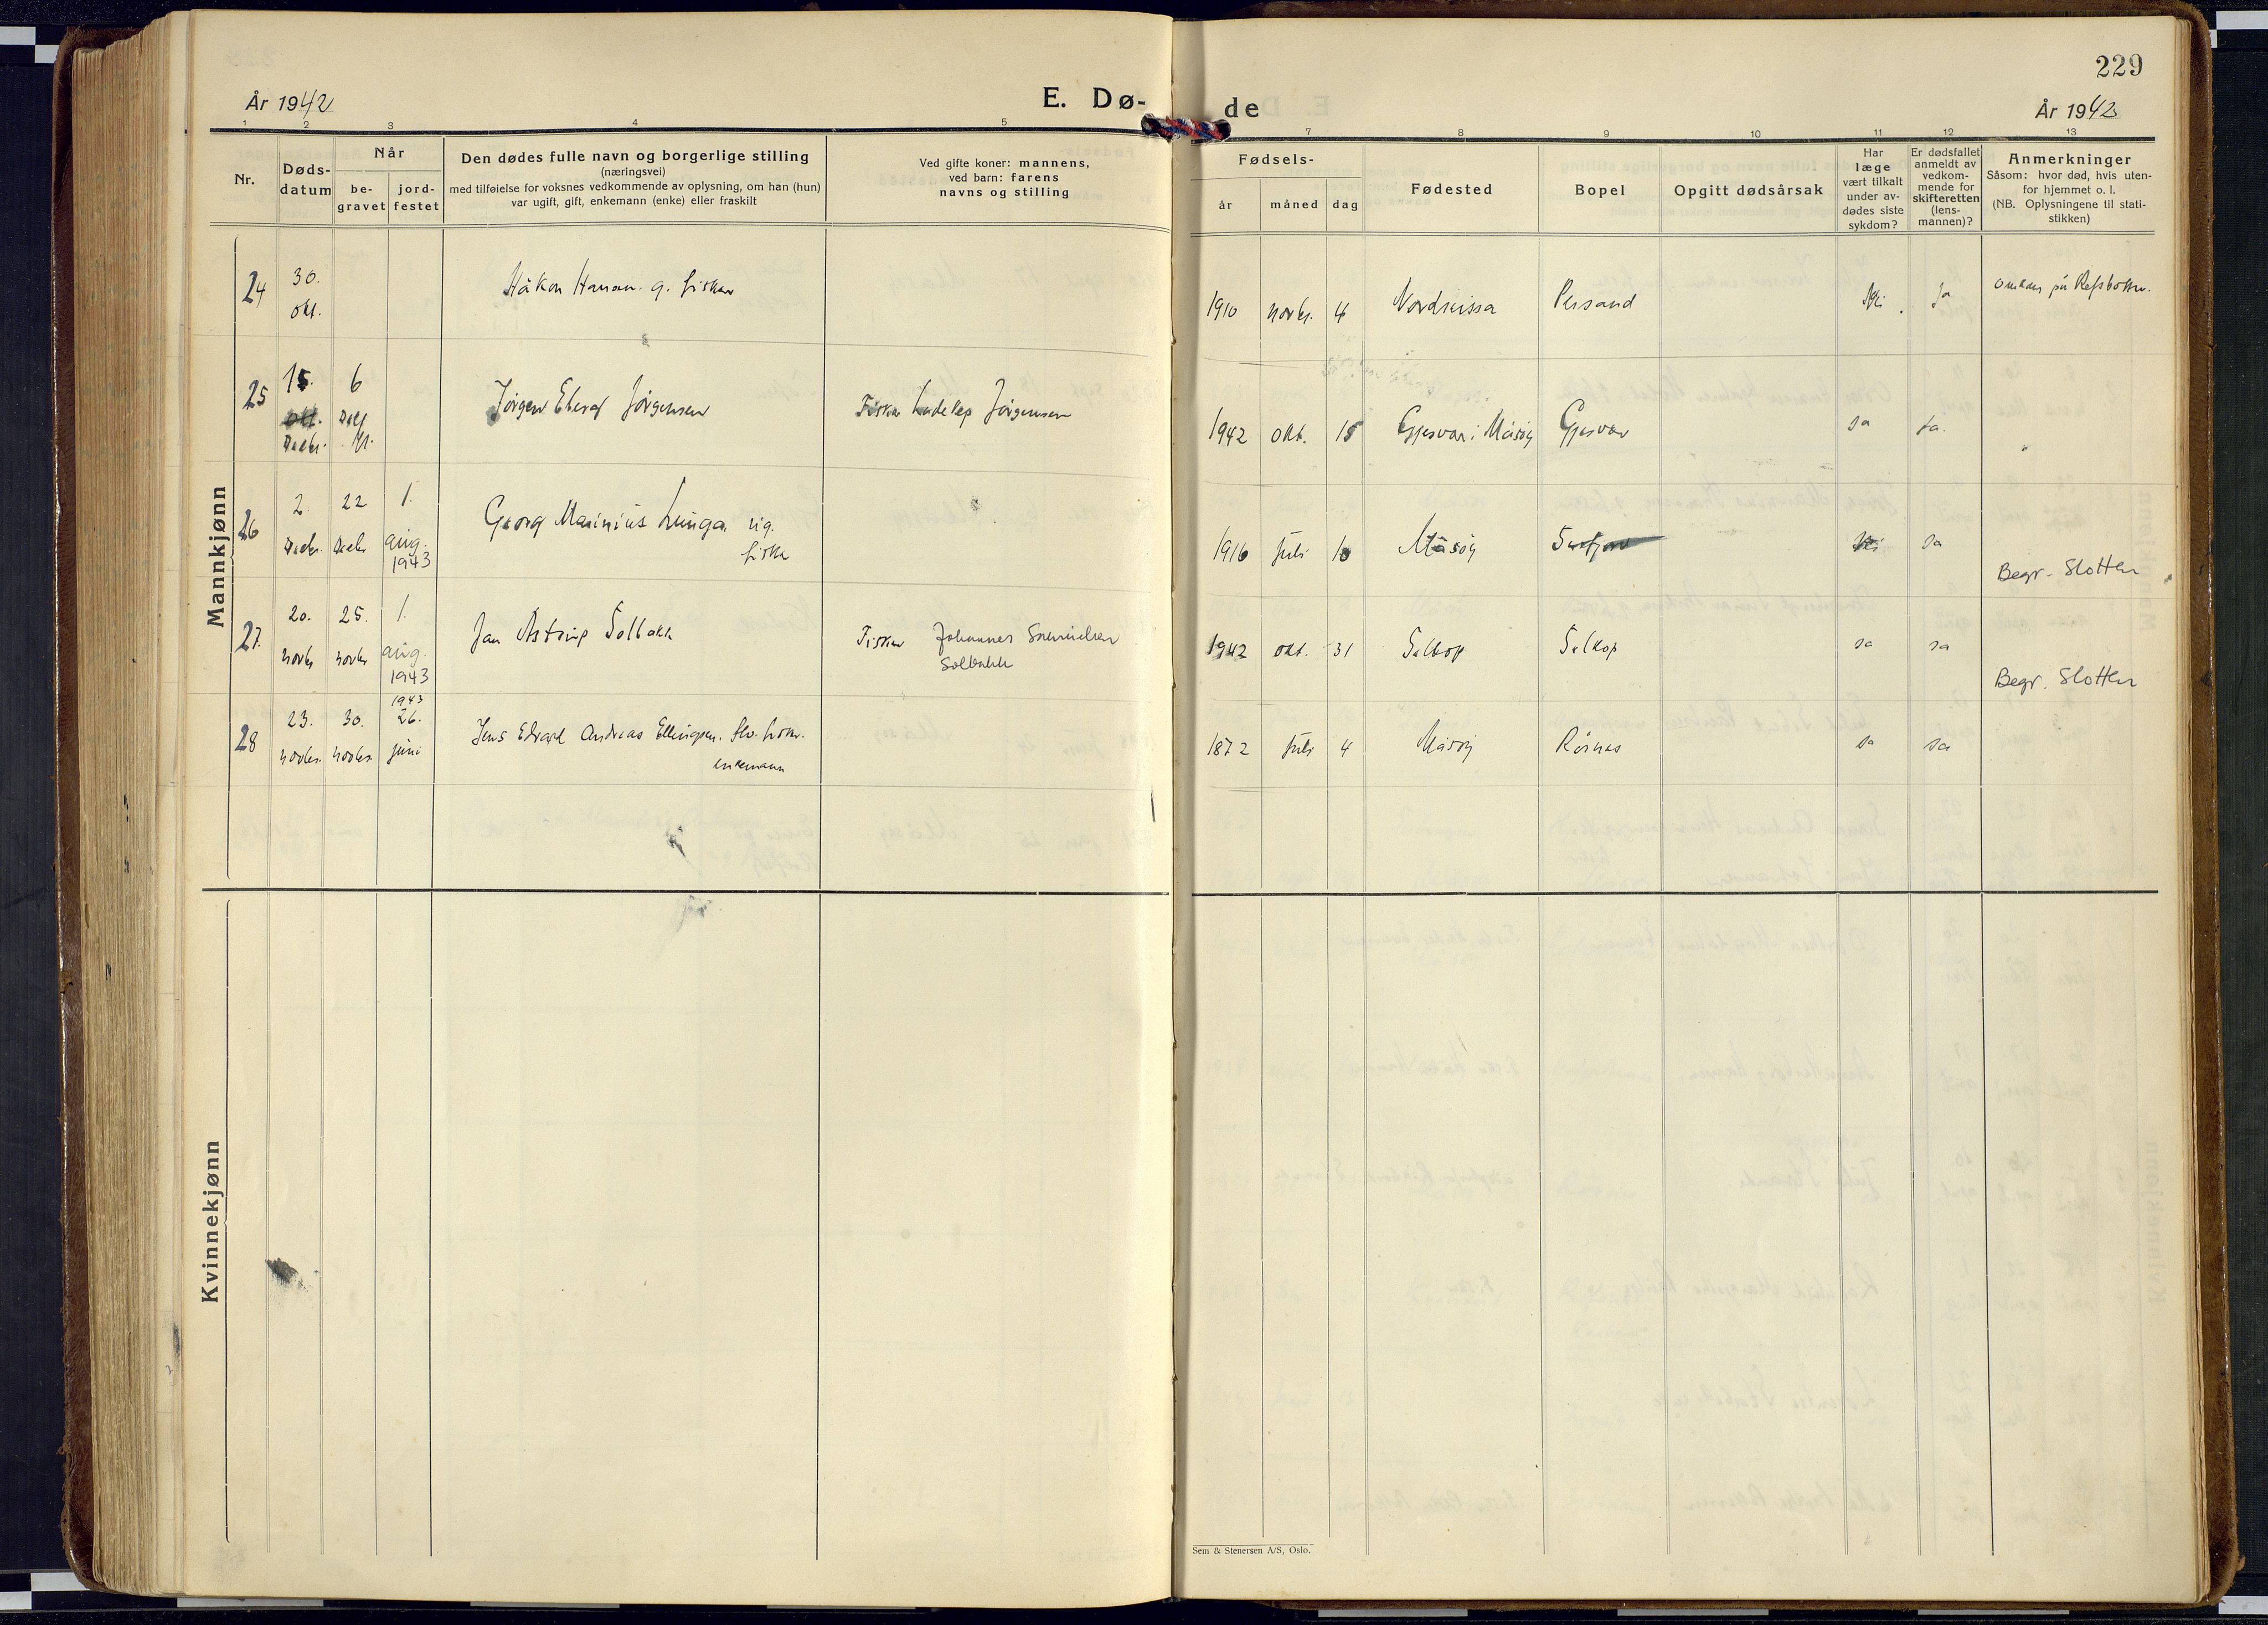 229
År 1942
E. Dø-
de
År 1942
1 2 3 4 5 7 8 9 10 11 12 13
Nr.
Døds-
datum
Når
be-
gravet
jord-
festet
Den dødes fulle navn og borgerlige stilling
(næringsvei)
med tilføielse for voksnes vedkommende av oplysning, om han (hun)
var ugift, gift, enkemann (enke) eller fraskilt
Ved gifte koner: mannens,
ved barn: farens
navns og stilling
Fødsels-
år måned dag
Fødested
Bopel
Opgitt dødsårsak
Har
læge
vært tilkalt
under av-
dødes siste
sykdom?
Er dødsfallet
anmeldt av
vedkom-
mende for
skifteretten
(lens-
mannen)?
Anmerkninger
Såsom: hvor død, hvis uten-
for hjemmet o. l.
(NB. Oplysningene til stati-
stikken)
Mannkjønn
24
30.
okt.
Håkon Hansen. g. fisker
1910 novbr. 4
Persand
Nei
Ja
omkom på Refsbotn.
25
15.
okt.
Decbr.
6
Jørgen Jørgensen
Fisker Jørgensen
1942 okt. 15 Gjesvær i Måsøy Gjesvær
Ja
Ja.
26
2.
Decbr.
22
Decbr
1.
aug.
1943
Georg Marinius ug.
fisker
1916 juli 10 Måsøy
Nei
Ja
Begr. Slotten
27.
20.
novbr
25.
novbr
1.
aug.
1943
Jan Astrup Solbakk
Fisker Johannes
Solbakk
1942 okt. 31
Ja
Ja
Begr. Slotten
28
23.
novbr.
30.
novbr.
1943
26.
juni
Jens Edvard Andreas Ellingsen.
enkemann
1872 juli 4 Måsøy
Ja
Ja
Kvinnekjønn
Sem & Stenersen A/S, Oslo.